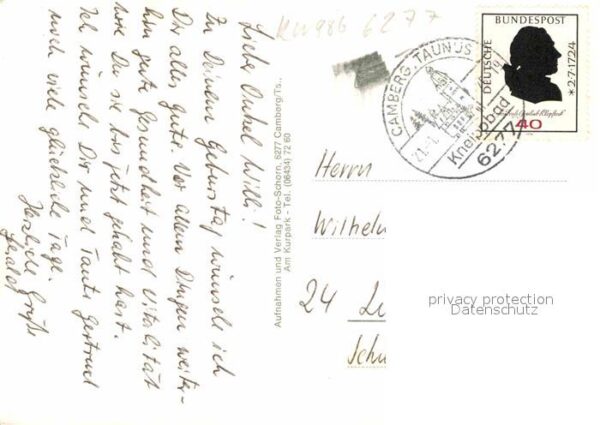 Lieber Onkel Willi!
Zu Deinem Geburtstag wünsche ich
Dir alles Gute. Vor allem Dingen weiter-
hin gute Gesundheit und Vitalität
wie Du sie bis jetzt gehabt hast.
Ich wünsche Dir und Tante Gertrud
noch viele glückliche Tage.
Herzliche Grüße
Aufnahmen und Verlag Foto-Schorn, 6277 Camberg/Ts.,
Am Kurpark - Tel. (06434) 72 60
6277
CAMBERG, TAUNUS
Kneippbad
6277
DEUTSCHE
BUNDESPOST
* 2·7·1724
40
Herrn
Wilhelm
24
privacy protection
Datenschutz